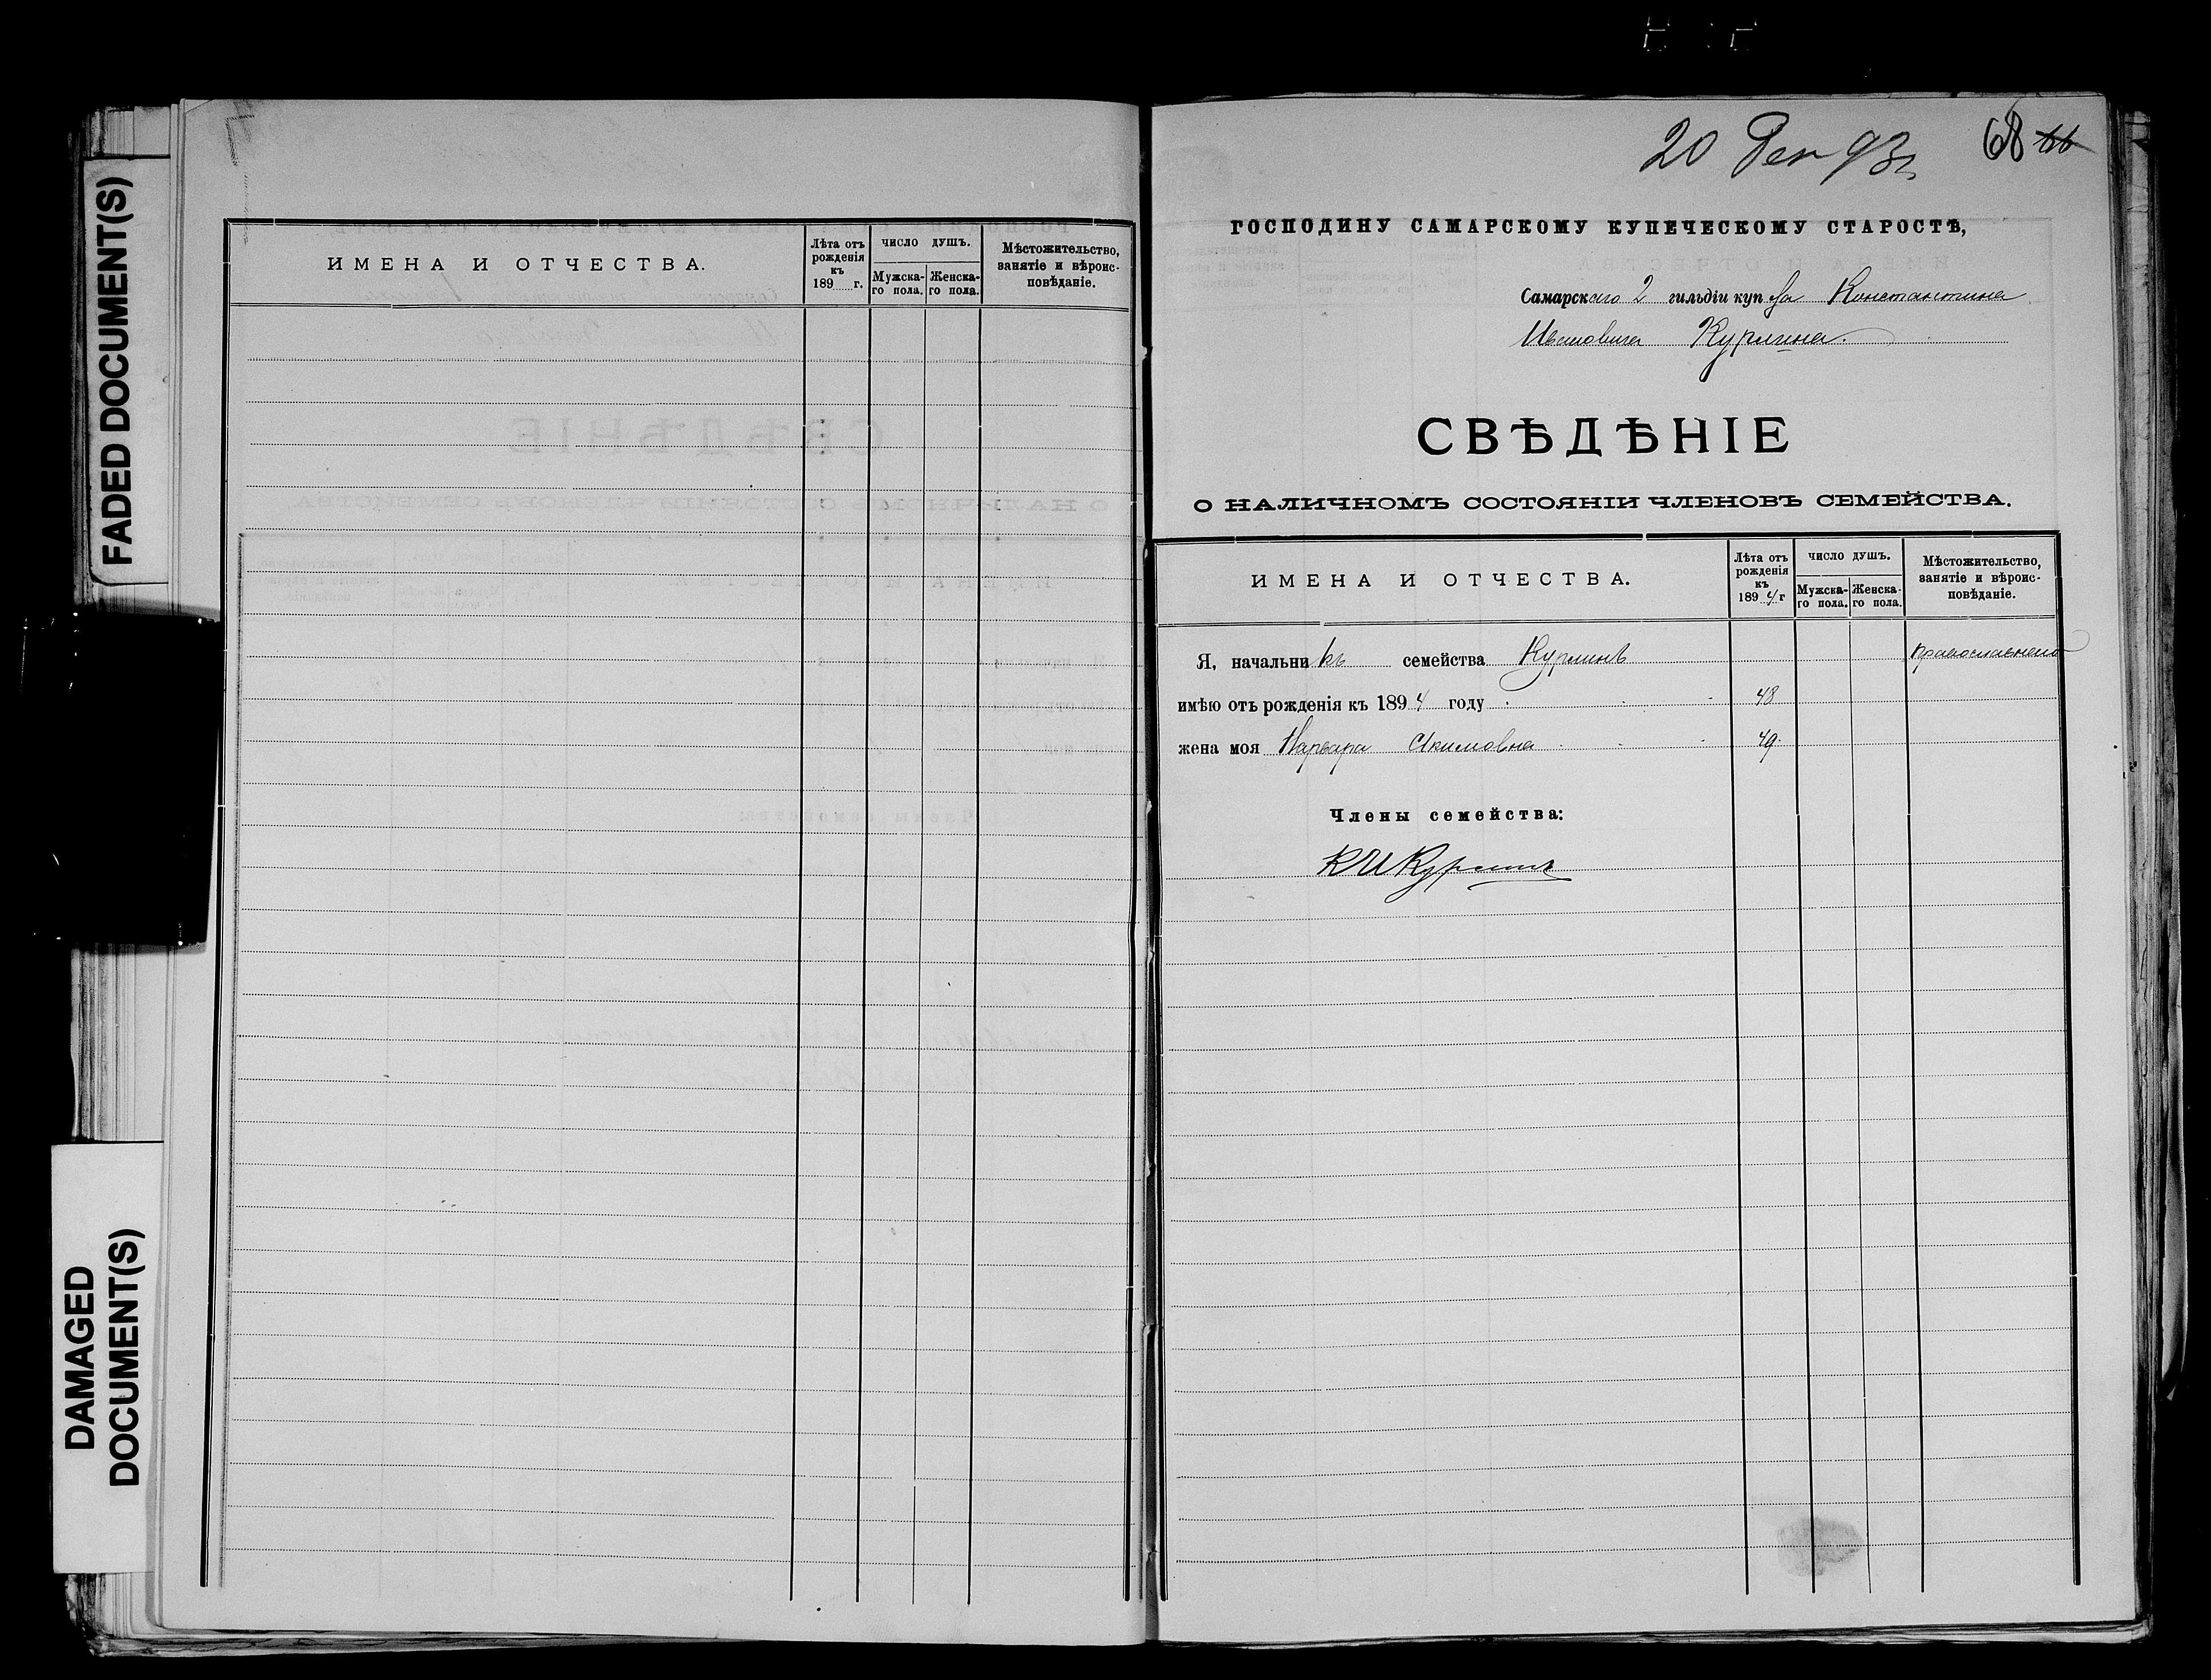 FADED DOCUMENT(S)
DAMAGED
DOCUMENT(S)
ИМЕНА И ОТЧЕСТВА.
Лѣта отъ
рожденія
къ
189 г.
ЧИСЛО ДУШЪ.
Мужска-
го пола.
Женска-
го пола.
Мѣстожительство,
занятіе и вѣроис-
повѣданіе.
20 Дек 93 г
68 66
ГОСПОДИНУ САМАРСКОМУ КУПЕЧЕСКОМУ СТАРОСТѢ,
Самарскаго 2 гильдіи купца Константина
Ивановича Курлина.
СВѢДѢНІЕ
О НАЛИЧНОМЪ СОСТОЯНІИ ЧЛЕНОВЪ СЕМЕЙСТВА.
ИМЕНА И ОТЧЕСТВА.
Лѣта отъ
рожденія
къ
1894 г
ЧИСЛО ДУШЪ.
Мужска-
го пола.
Женска-
го пола.
Мѣстожительство,
занятіе и вѣроис-
повѣданіе.
Я, начальникъ семейства Курлинъ Православнаго
имѣю отъ рожденія къ 1894 году 48
жена моя Варвара Якимовна 49
Члены семейства:
К И Курлинъ